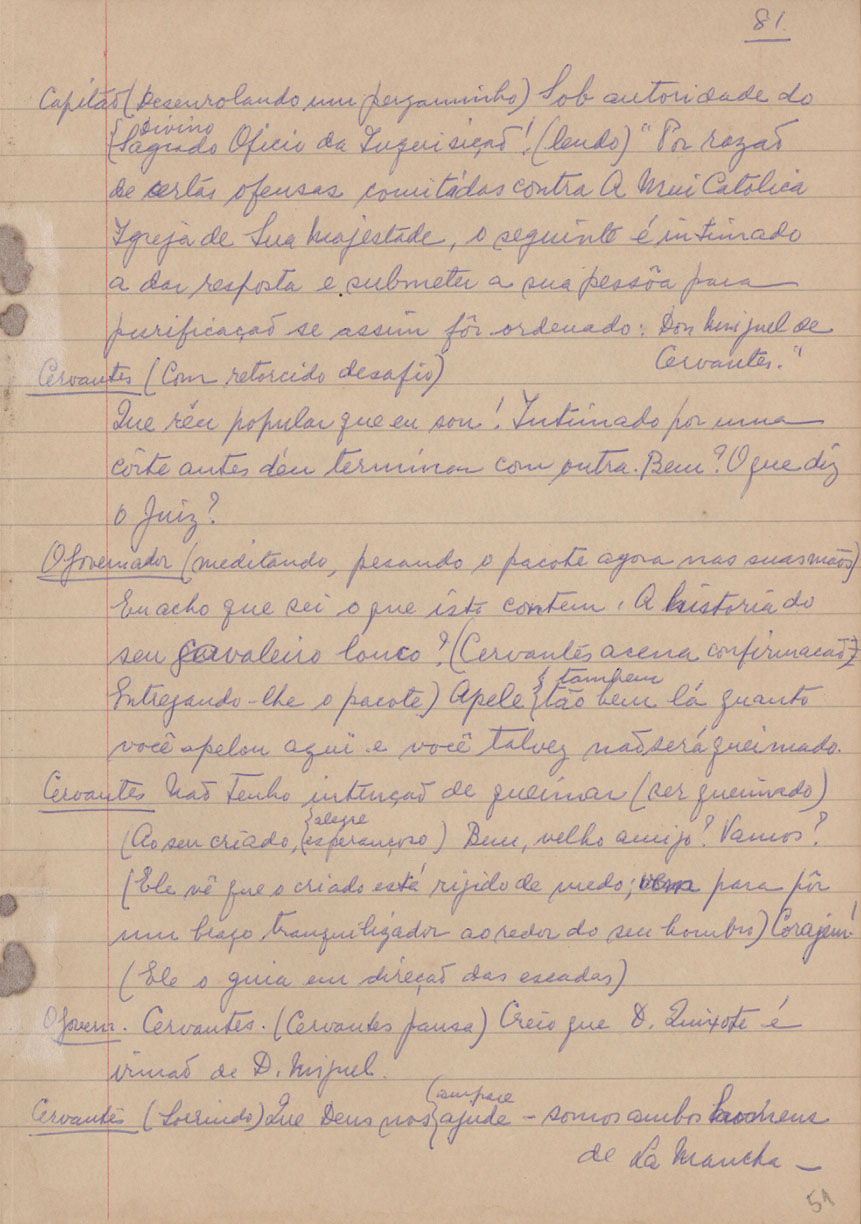 81
Capitão (Desenrolando um pergaminho) Sob autoridade do
{Divino
{Sagrado Oficio da Inquisição! (lendo) "Por razão
de certas ofensas comitádas contra A Mui Católica
Igreja de Sua Majestade, o seguinte é intimado
a dar resposta e submeter a sua pessôa para
purificação se assim fôr ordenado: Don Miguel de
Cervantes."
Cervantes (Com retorcido desafio)
Que réu popular que eu sou! Intimado por uma
côrte antes deu terminar com outra. Bem? O que diz
o Juiz?
O Governador (meditando, pesando o pacote agora nas suas mãos)
Eu acho que sei o que isto contem. A historia do
seu cavaleiro louco? (Cervantes acena confirmacão
Entregando-lhe o pacote) Apele {tão bem lá quanto
{tambem
você apelou aqui e você talvez não será queimado.
Cervantes Não Tenho intenção de queimar (ser queimado)
(Ao seu criado, {esperançoso) Bem, velho amigo? Vamos?
{alegre
(Ele vê que o criado está rijido de medo; para pôr
um braço tranquilizador ao redor do seu hombro) Corajem!
(Ele o guia em direção das escadas)
O Govern. Cervantes. (Cervantes pausa) Creio que D. Quixote é
irmão de D. Miguel.
Cervantes (Sorrindo) Que Deus nos {ajude - somos ambos homens
{ampare
de La Mancha -
51